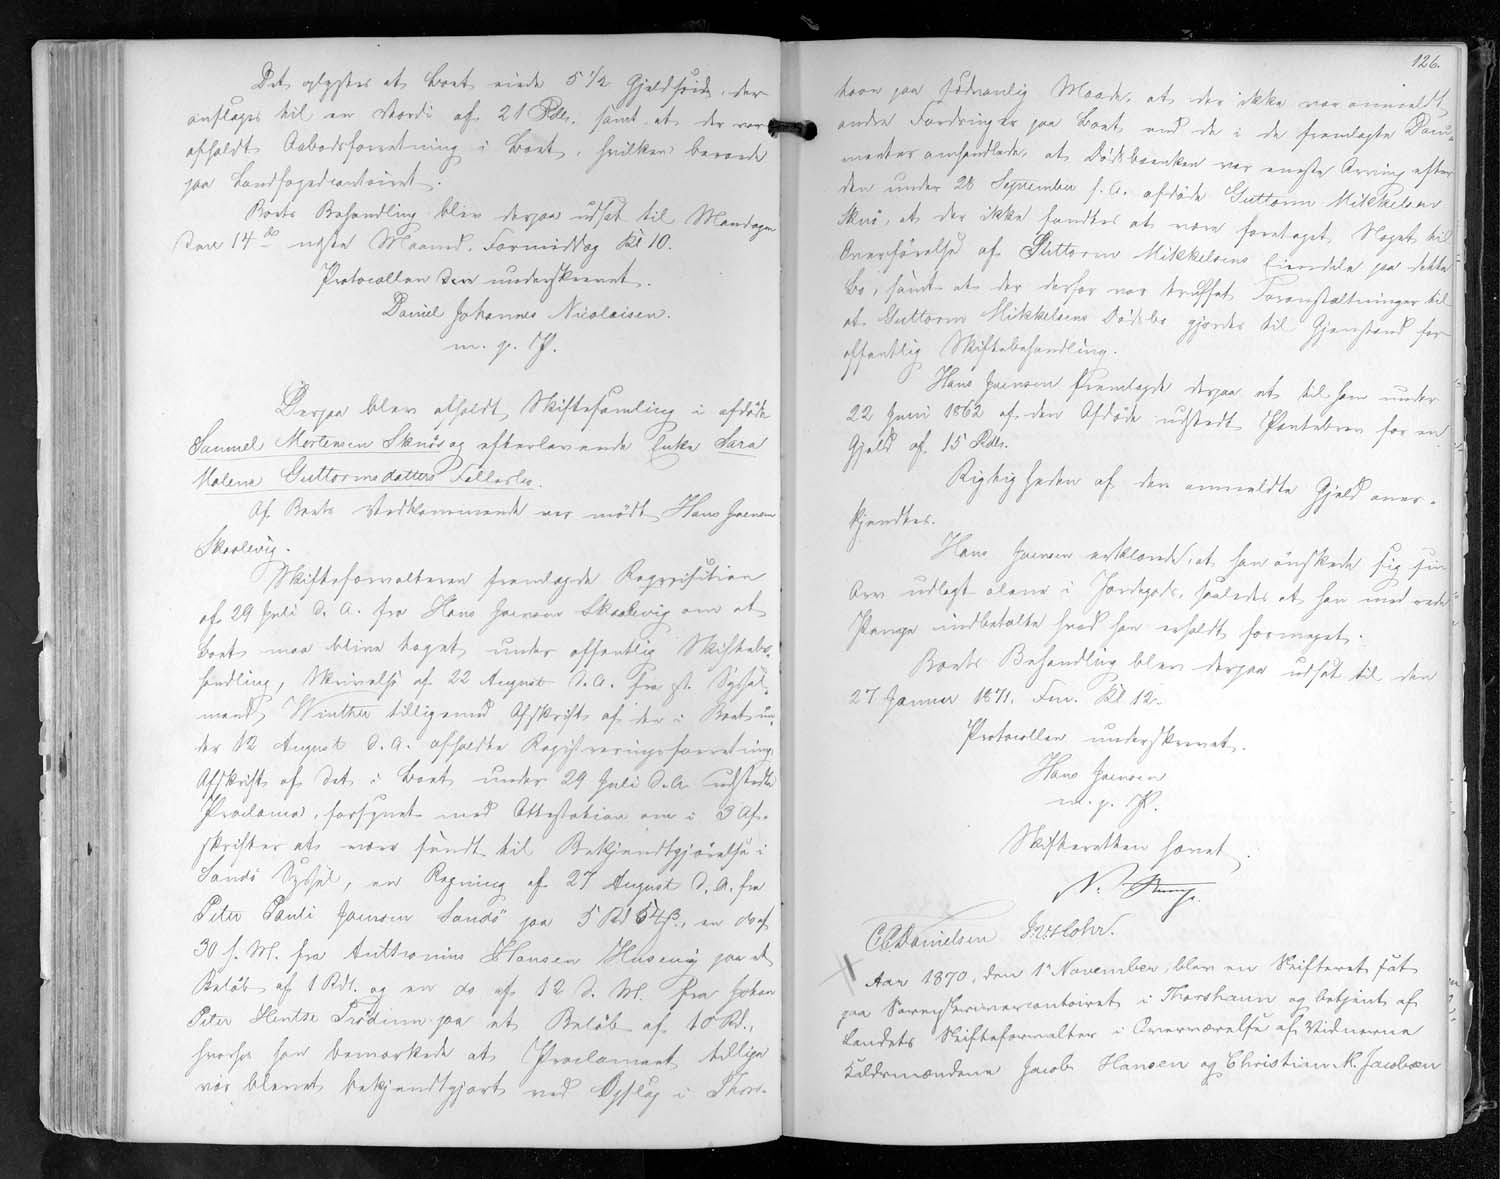 Det oplystes at Boet eiede 5 1/2 Gjeldsøide, der
ansloges til en Værdi af 21 Rdl. samt at der var
afholdt Aabodsforretning i Boet, hvilken beroede
paa Landfogedcontoiret.
Boets Behandling blev derpaa udsat til Mandagen
den 14de næste Maaned, Formiddag Kl 10.
Protocollen den underskrevet.
Daniel Johannes Nicolaisen.
m. p. P.
Derpaa blev afholdt Skiftesamling i afdøde
Samuel Mortensen Sknös og efterlevende Enke Sara
Malene Guttormsdatters Fællesbo.
Af Boets Vedkommende var mødt Hans Joensen
Skaalevig.
Skifteforvalteren fremlagde Reqvisition
af 29 Juli d. A. fra Hans Joensen Skaalevig om at
Boet maa blive taget under offentlig Skiftebe-
handling, Skrivelse af 22 August d. A. fra st. Syssel-
mand Winther tilligemed Afskrift af den i Boet un-
der 12 August d. A. afholdte Registreringsforretning,
Afskrift af det i Boet under 29 Juli d. A. udstedte
Proclama, forsynet med Attestation om i 3 Af-
skrifter at være sendt til Bekjendtgjørelse i
Sandö Syssel, en Regning af 27 August d. A. fra
Peter Pauli Joensen Sandö paa 5 Rd 54 ß, en do af
30 f. M. fra Hansen Husevig paa et
Beløb af 1 Rdl. og en do af 12 d. M. fra Johan
Peter Hentze paa et Beløb af 10 Rd.,
hvorhos han bemærkede at Proclamaet tillige
var blevet bekjendtgjort ved Opslag i Thors-
126.
havn paa sædvanlig Maade, at der ikke var anmeldt
andre Fordringer paa Boet end de i de fremlagte Docu-
menter omhandlede, at Dødsboenken var eneste Arving efter
den under 28 September f. A. afdøde Guttorm Mikkelsen
Sknö, at der ikke fandtes at være foretaget Noget til
Overførelse af Guttorm Mikkelsens Eiendele paa dette
Bo, samt at der derfor var truffet Foranstaltninger til
at Guttorm Mikkelsens Dødsbo gjøres til Gjenstand for
offentlig Skiftebehandling.
Hans Joensen fremlagde derpaa et til ham under
22 Juni 1862 af den Afdøde udstedt Pantebrev for en
Gjeld af 15 Rdl.
Rigtigheden af den anmeldte Gjeld aner-
kjendtes.
Hans Joensen erklærede, at han ønskede sig sin
Arv udlagt alene i Jordegods, saaledes at han med rede
Penge indbetalte hvad han erholdt formeget.
Boets Behandling blev derpaa udsat til den
27 Januar 1871. Fm. Kl 12.
Protocollen underskrevet.
Hans Joensen
m. p. P.
Skifteretten hævet.
C C Danielsen M Lohr.
Aar 1870, den 1e November, blev en Skifteret sat
paa Sorenskrivercontoiret i Thorshavn og betjent af
Landets Skifteforvalter i Overværelse af Vidnerne
Kaldsmændene Jacob Hansen og Christian M. Jacobsen